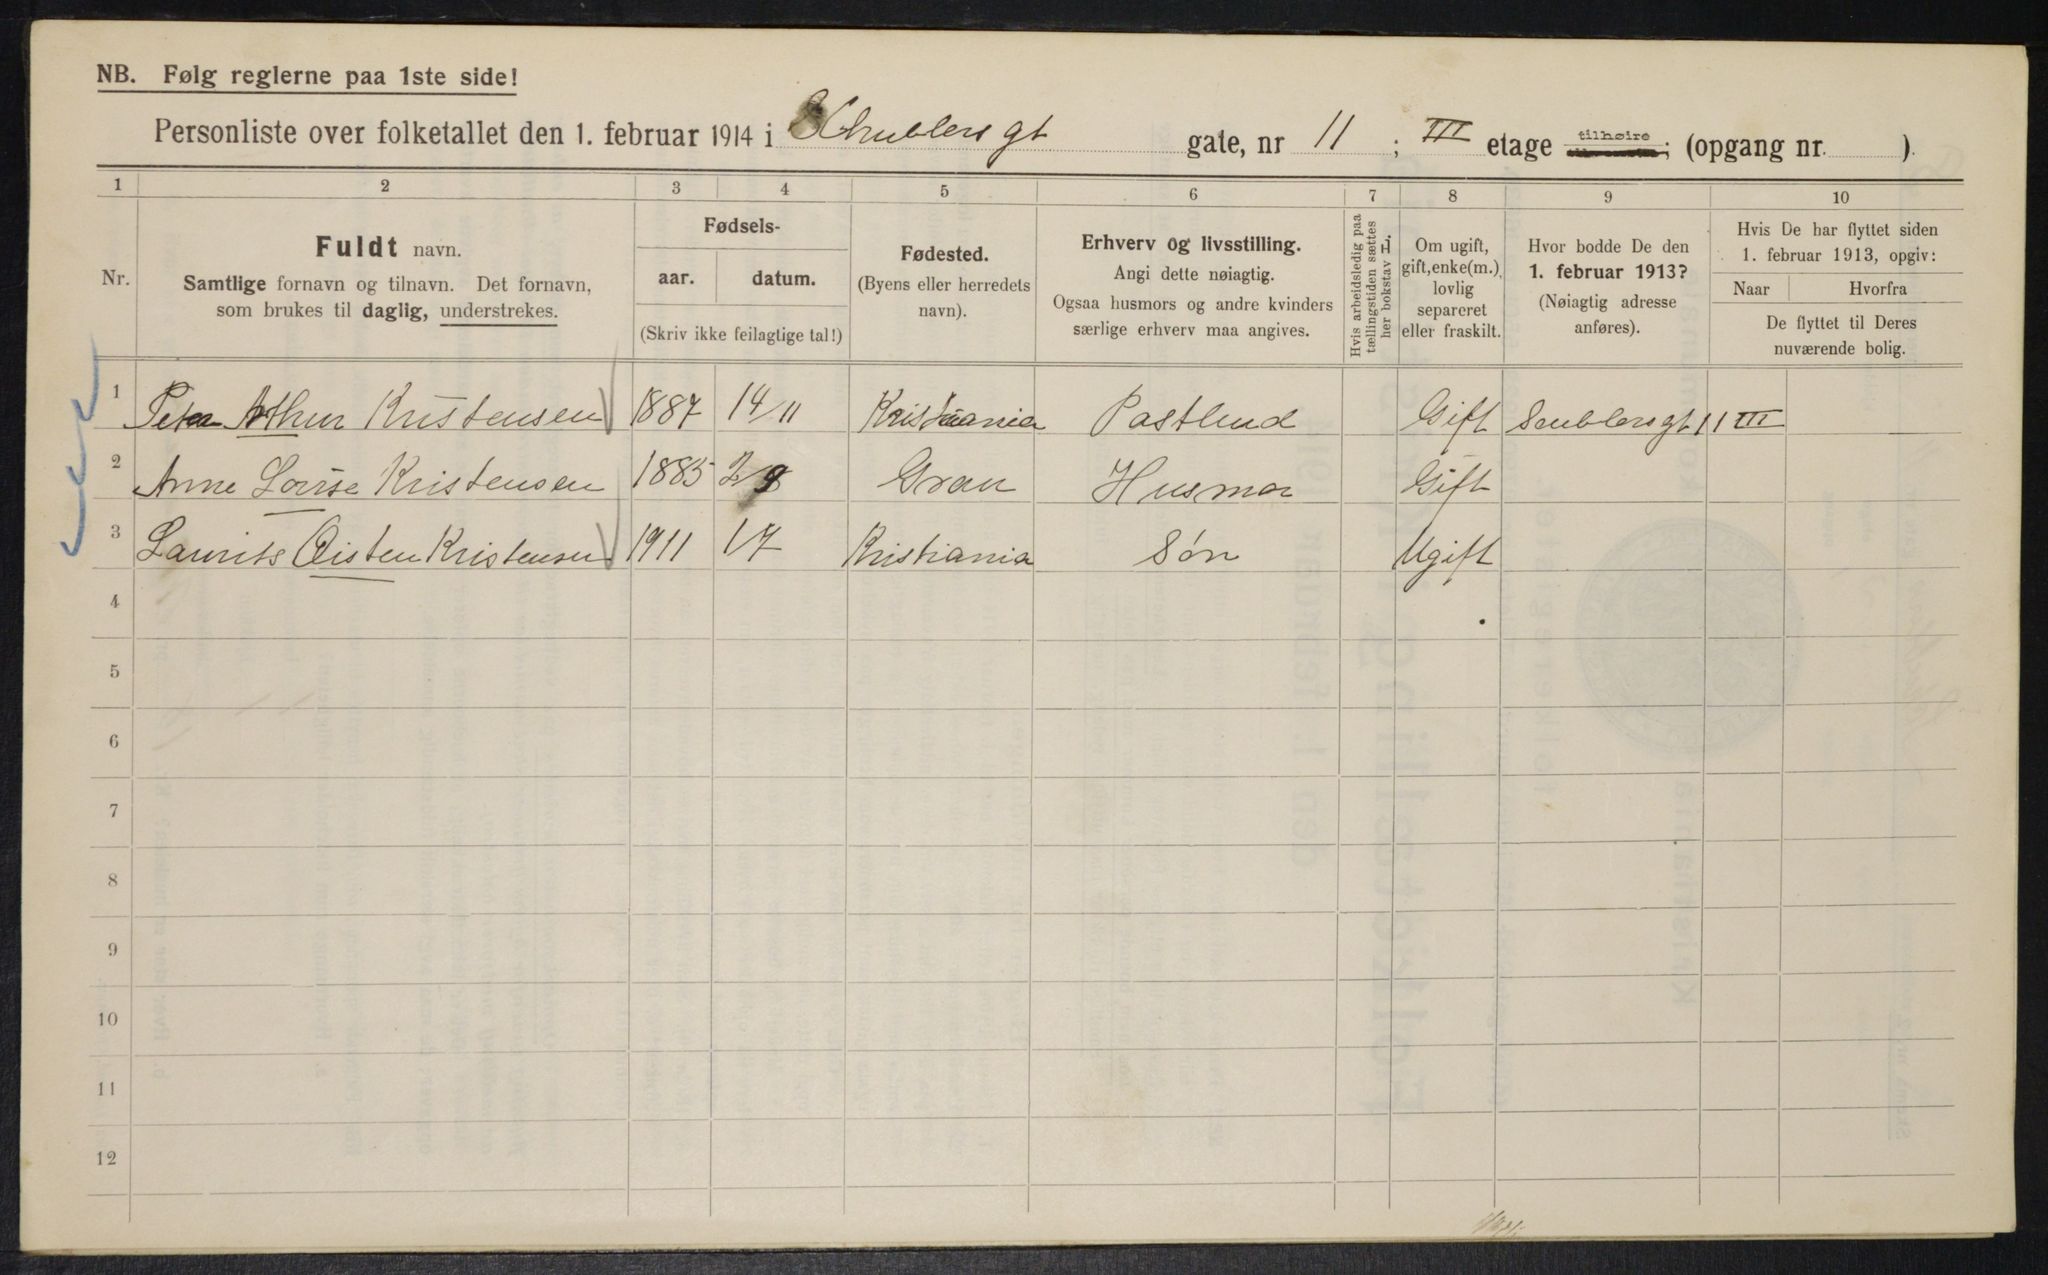 NB. Følg reglerne paa 1ste side!
Personliste over folketallet den 1. februar 1914 i Schublersgt gate, nr 11 ; III etage tilhøire ; (opgang nr. ).
1 2 3 4 5 6 7 8 9 10
Nr.
Fuldt navn.
Samtlige fornavn og tilnavn. Det fornavn,
som brukes til daglig, understrekes.
Fødsels-
aar. datum.
(Skriv ikke feilagtige tal!)
Fødested.
(Byens eller herredets
navn).
Erhverv og livsstilling.
Angi dette nøiagtig.
Ogsaa husmors og andre kvinders
særlige erhverv maa angives.
Hvis arbeidsledig paa
tællingstiden sættes
her bokstav L.
Om ugift,
gift, enke(m.),
lovlig
separeret
eller fraskilt.
Hvor bodde De den
1. februar 1913?
(Nøiagtig adresse
anføres).
Hvis De har flyttet siden
1. februar 1913, opgiv:
Naar Hvorfra
De flyttet til Deres
nuværende bolig.
1 Peter Arthur Kristensen 1887 14/11 Kristiania Postbud Gift Scublersgt 11 III
2 Anne Lovise Kristensen 1885 Gran Husmor Gift
3 Laurits Øisten Kristensen 1911 1/7 Kristiania Søn Ugift
4
5
6
7
8
9
10
11
12